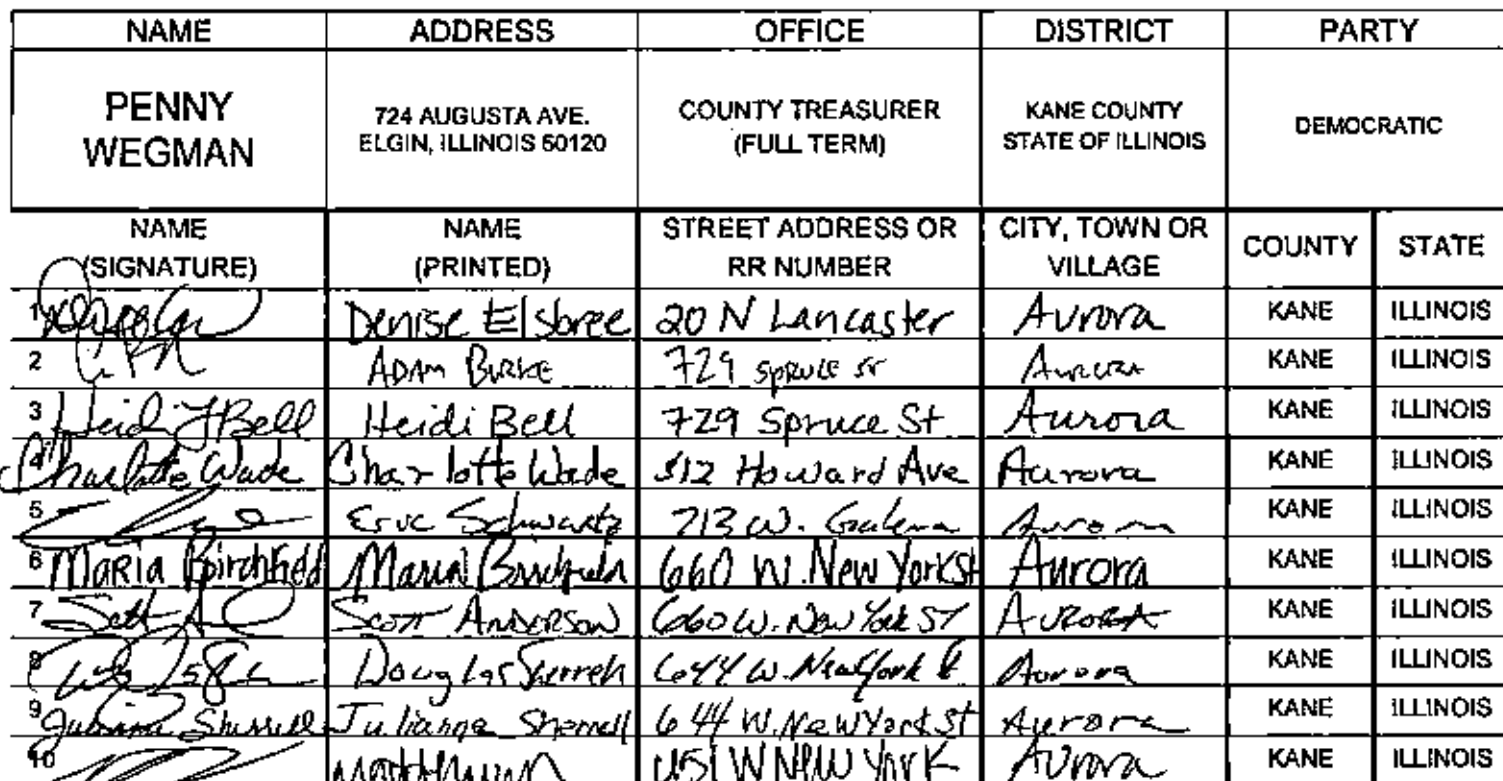 NAME ADDRESS OFFICE DISTRICT PARTY
PENNY WEGMAN 724 AUGUSTA AVE. ELGIN, ILLINOIS 60120 COUNTY TREASURER (FULL TERM) KANE COUNTY STATE OF ILLINOIS DEMOCRATIC
NAME (SIGNATURE) NAME (PRINTED) STREET ADDRESS OR RR NUMBER CITY, TOWN OR VILLAGE COUNTY STATE
1 Denise Elsbree 20 N Lancaster Aurora KANE ILLINOIS
2 ADAM BURKE 729 SPRUCE ST Aurora KANE ILLINOIS
3 Heidi J Bell Heidi Bell 729 Spruce St Aurora KANE ILLINOIS
4 Charlotte Wade Charlotte Wade 312 Howard Ave Aurora KANE ILLINOIS
5 Eric Schwartz 713 W. Galena Aurora KANE ILLINOIS
6 Maria Birchfield Maria 660 W. New York St Aurora KANE ILLINOIS
7 Scott SCOTT ANDERSON 660 W. New York ST AURORA KANE ILLINOIS
8 Douglas Sherrell 644 W. New York Aurora KANE ILLINOIS
9 Julianna Sherrell Julianna Sherrell 644 W. New York St Aurora KANE ILLINOIS
10 W NEW York Aurora KANE ILLINOIS